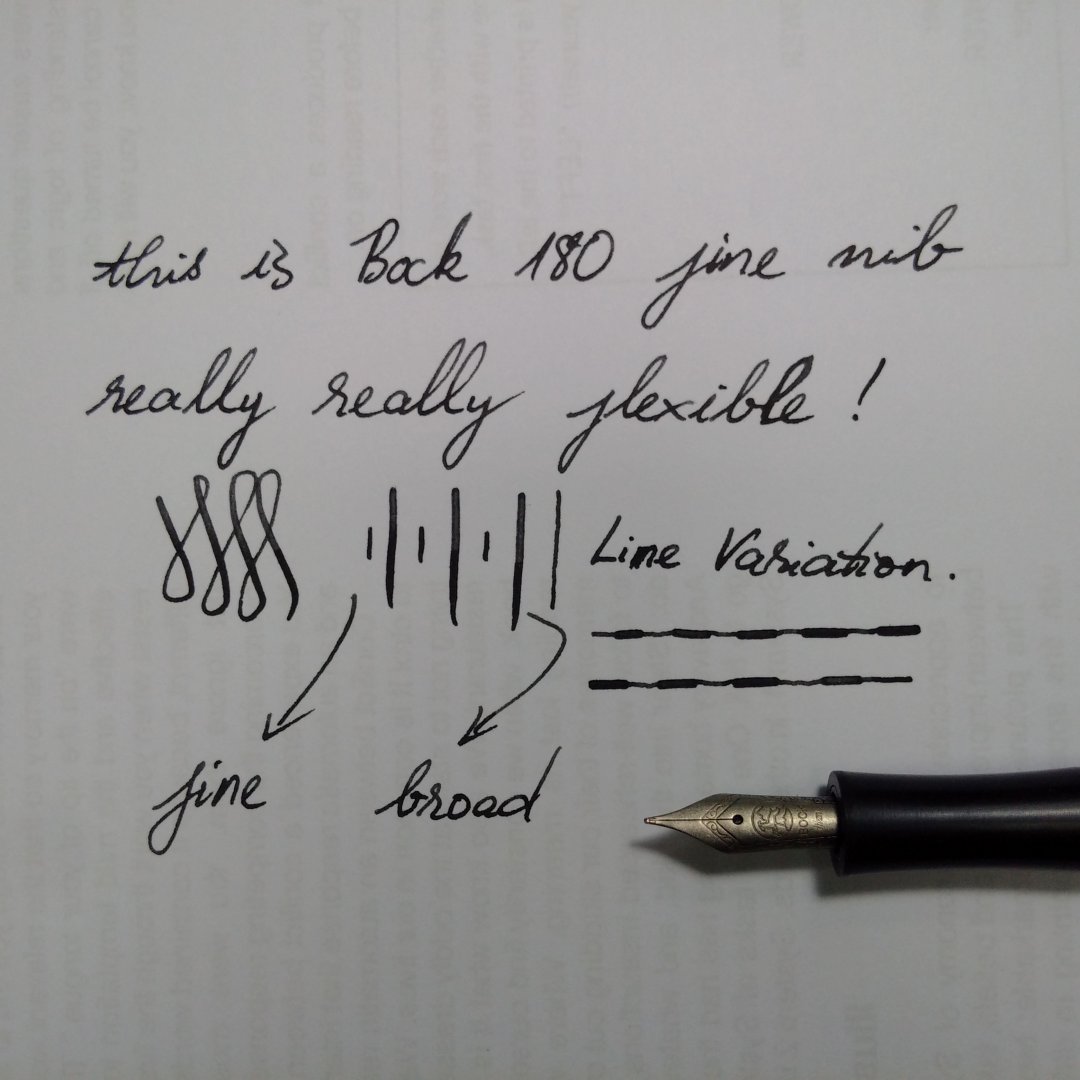 this is Bock 180 fine nib
really really flexible !
Line Variation.
fine
broad